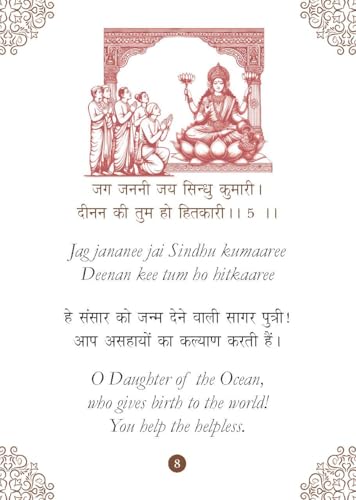 जग जननी जय सिन्धु कुमारी।
दीनन की तुम हो हितकारी।। 5 ।।
Jag jananee jai Sindhu kumaaree
Deenan kee tum ho hitkaaree
हे संसार को जन्म देने वाली सागर पुत्री!
आप असहायों का कल्याण करती हैं।
O Daughter of the Ocean,
who gives birth to the world!
You help the helpless.
8